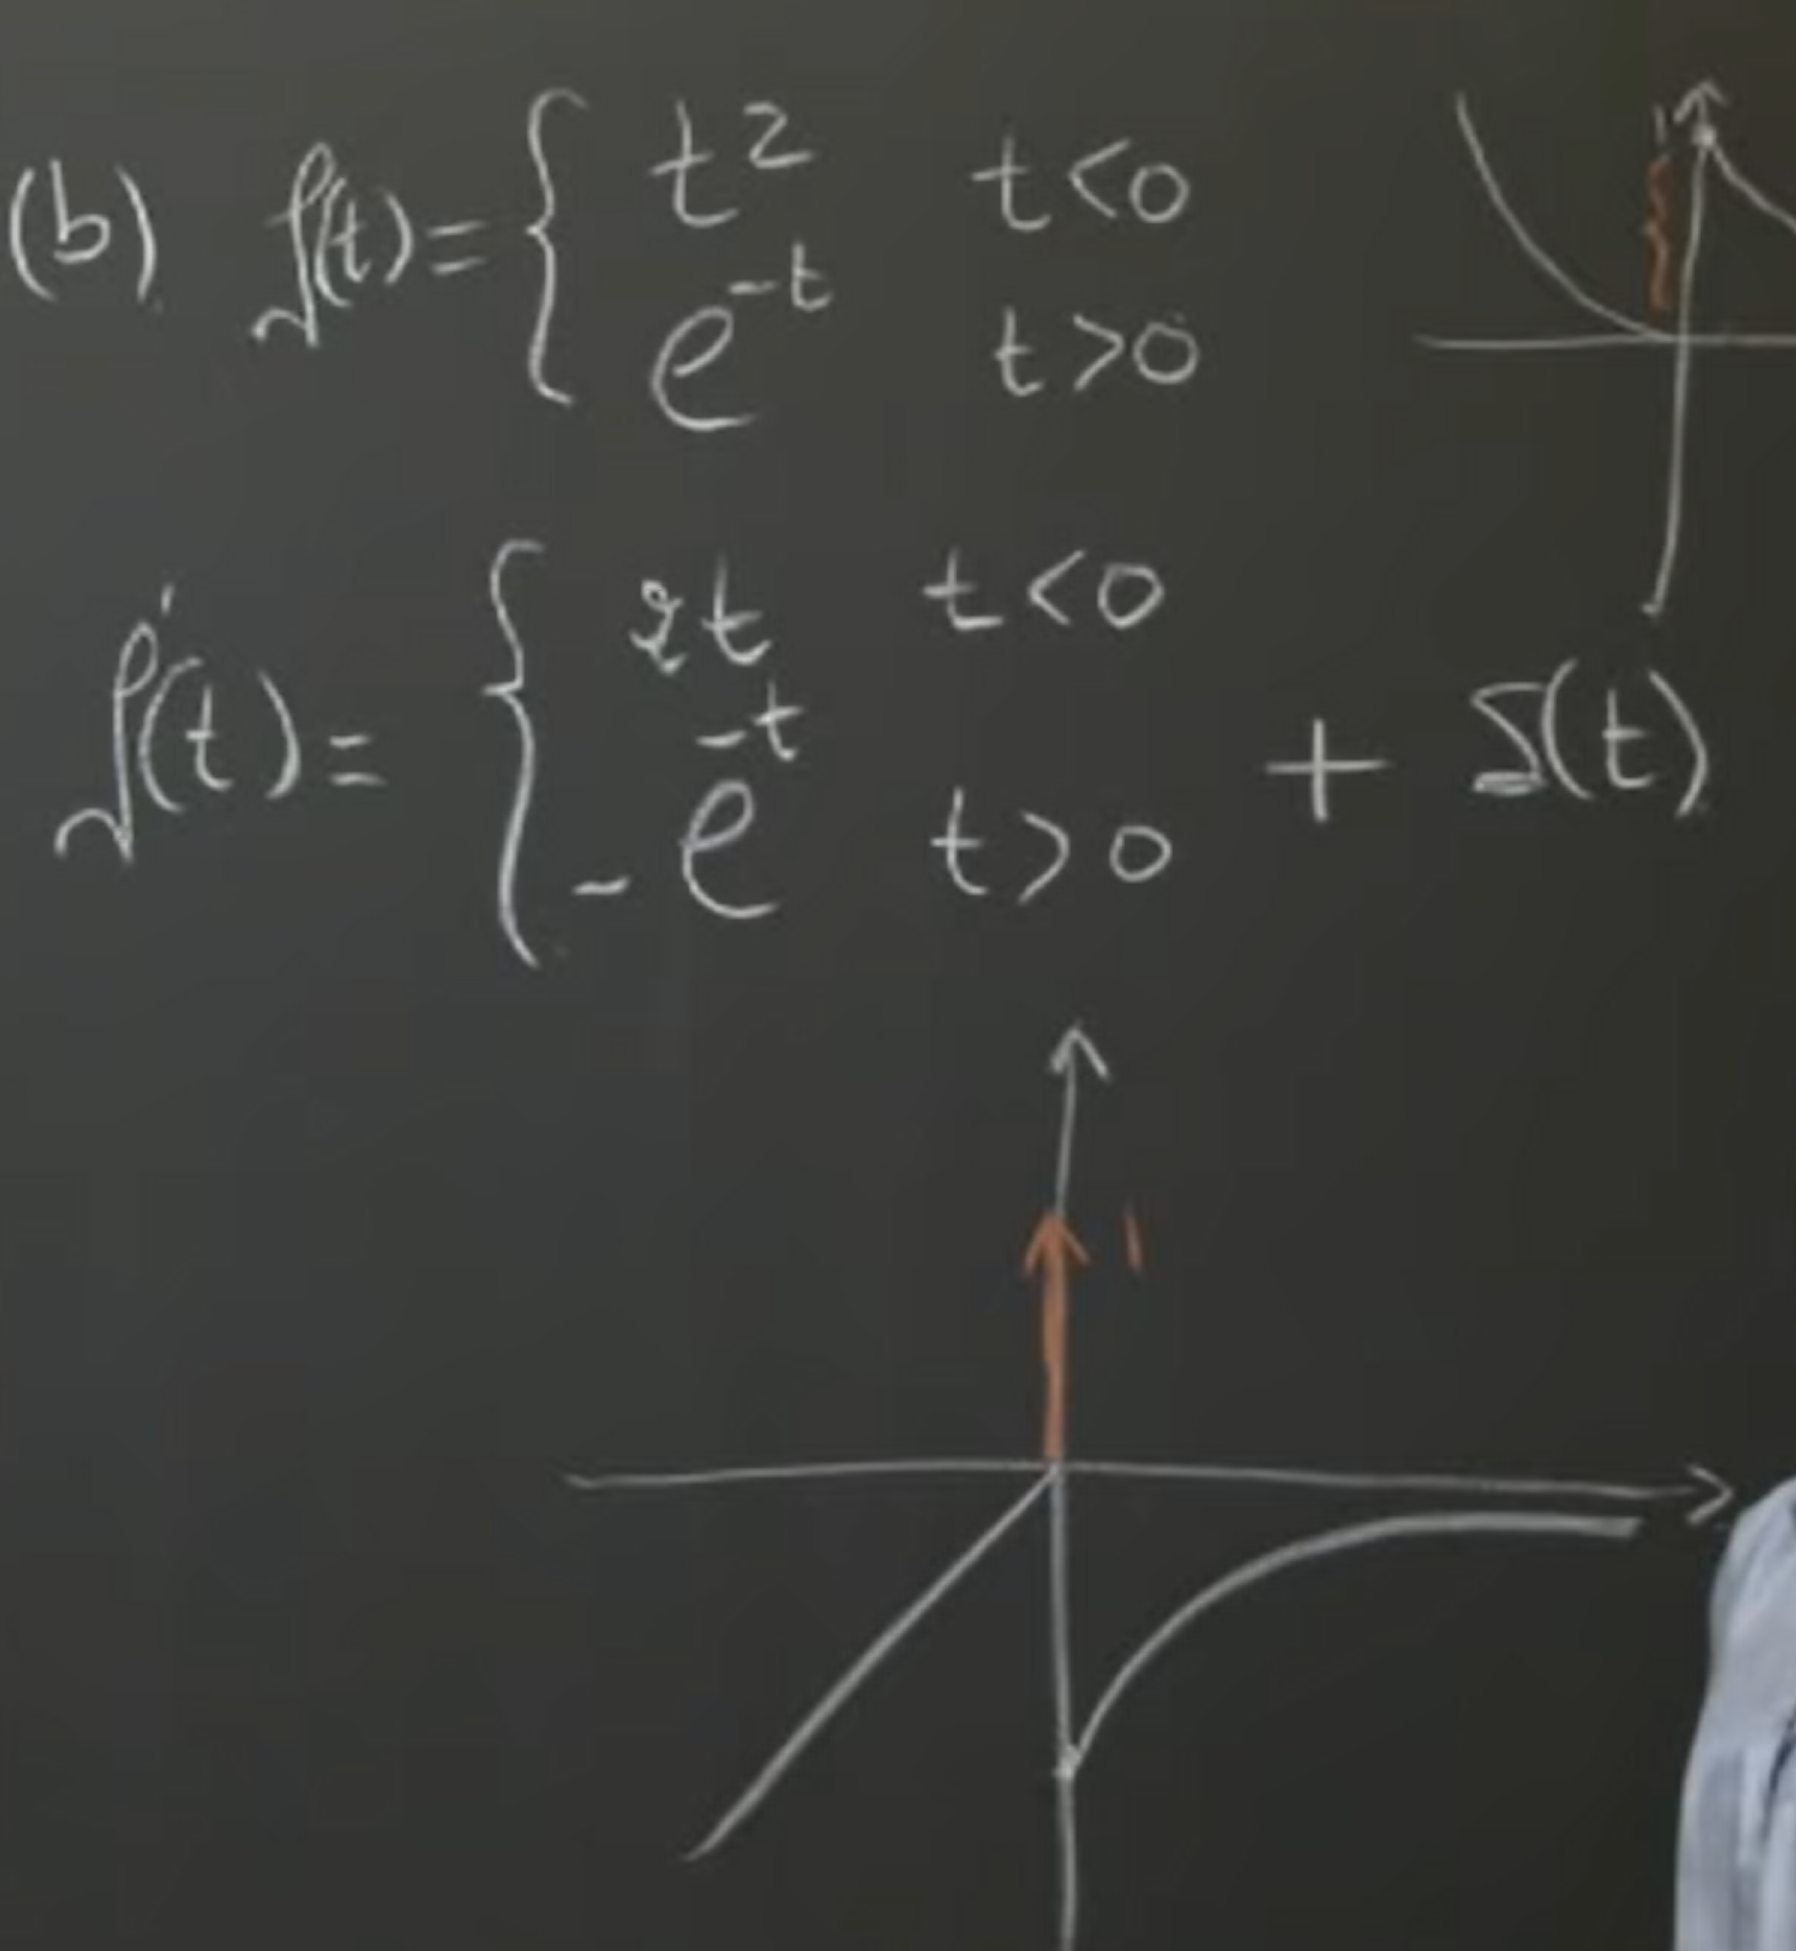 (b) f(t) = { t² t<0
e^{-t} t>0
1
f'(t) = { 2t t<0
-e^{-t} t>0 + δ(t)
1